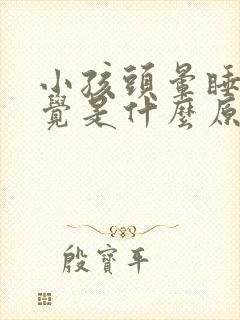 小孩頭暈睡
覺是什麼原
殷寶平